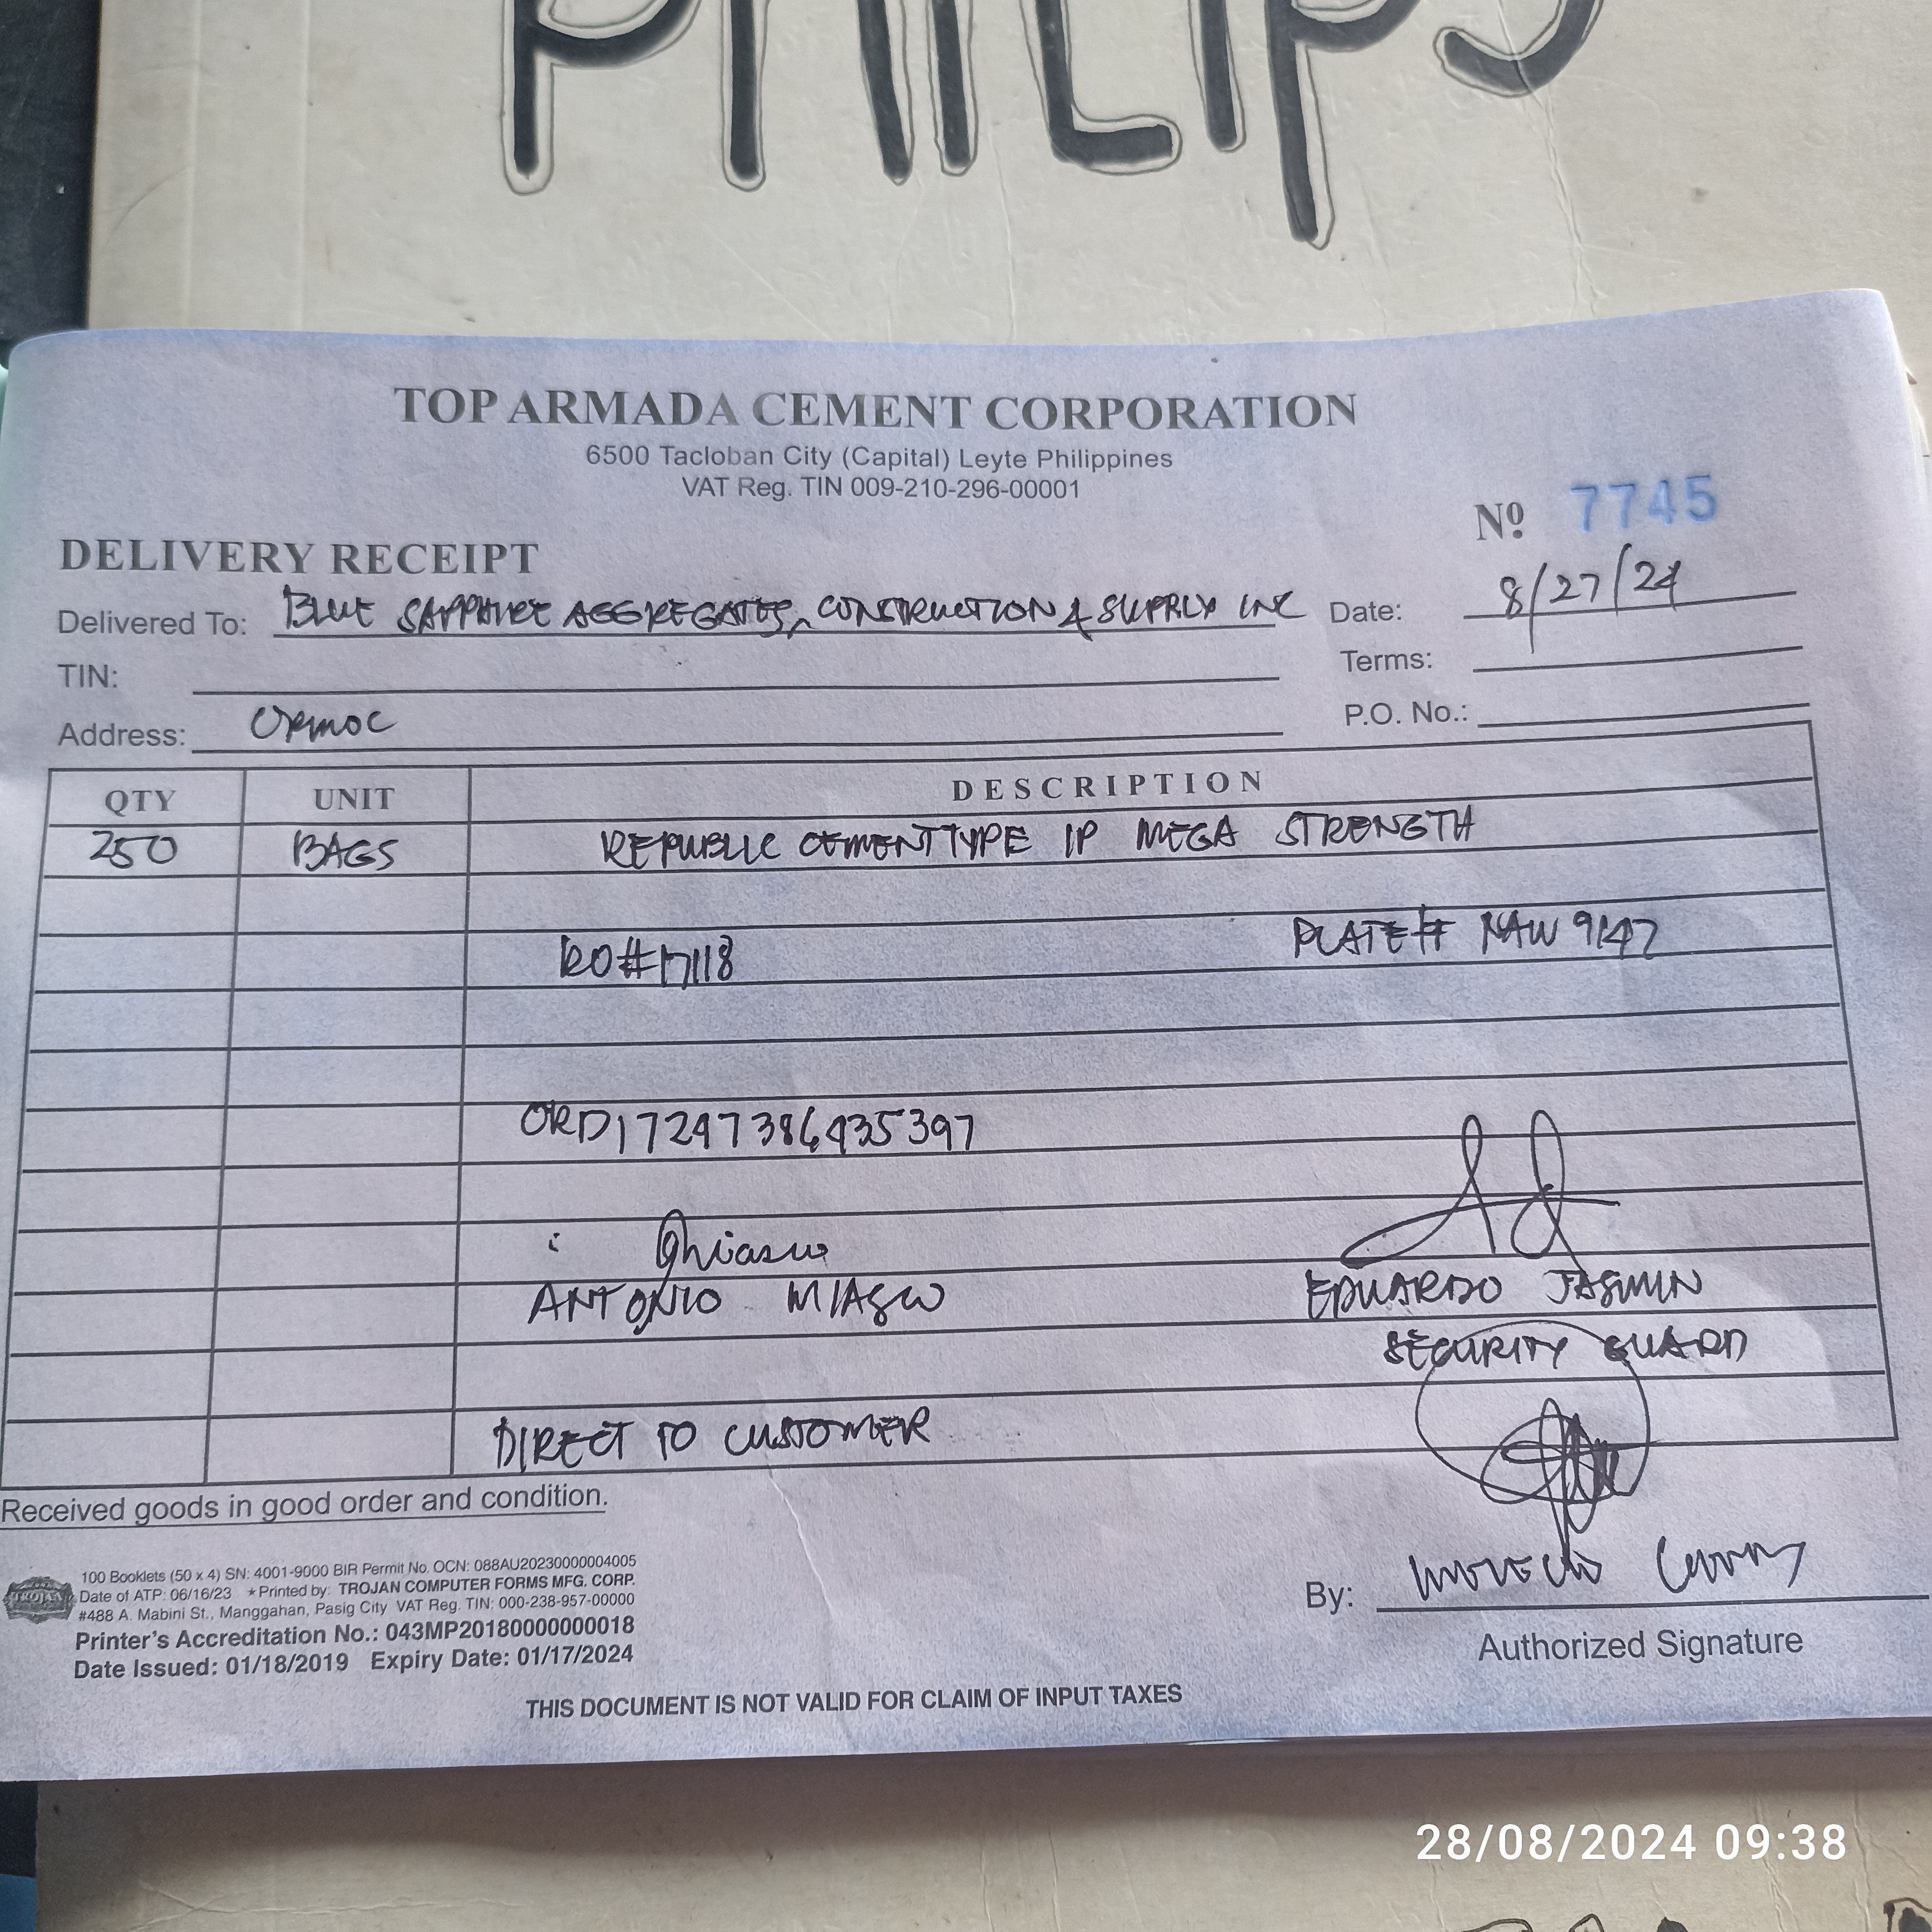 PHILIPS
TOP ARMADA CEMENT CORPORATION
6500 Tacloban City (Capital) Leyte Philippines
VAT Reg. TIN 009-210-296-00001
Nº 7745
DELIVERY RECEIPT
Delivered To: BLUE SAPPHIRE AGGREGATES, CONSTRUCTION & SUPPLY INC Date: 8/27/24
TIN: Terms:
Address: Ormoc P.O. No.:
QTY UNIT DESCRIPTION
250 BAGS REPUBLIC CEMENT TYPE IP MEGA STRENGTH
RO#17118 PLATE# NAW 9147
ORD17247386435397
ANTONIO EDUARDO JASMIN
SECURITY GUARD
DIRECT TO CUSTOMER
Received goods in good order and condition.
100 Booklets (50 x 4) SN: 4001-9000 BIR Permit No. OCN: 088AU20230000004005
Date of ATP: 06/16/23 * Printed by: TROJAN COMPUTER FORMS MFG. CORP.
#488 A. Mabini St., Manggahan, Pasig City VAT Reg. TIN: 000-238-957-00000
TROJAN
Printer's Accreditation No.: 043MP20180000000018
Date Issued: 01/18/2019 Expiry Date: 01/17/2024
By:
Authorized Signature
THIS DOCUMENT IS NOT VALID FOR CLAIM OF INPUT TAXES
28/08/2024 09:38